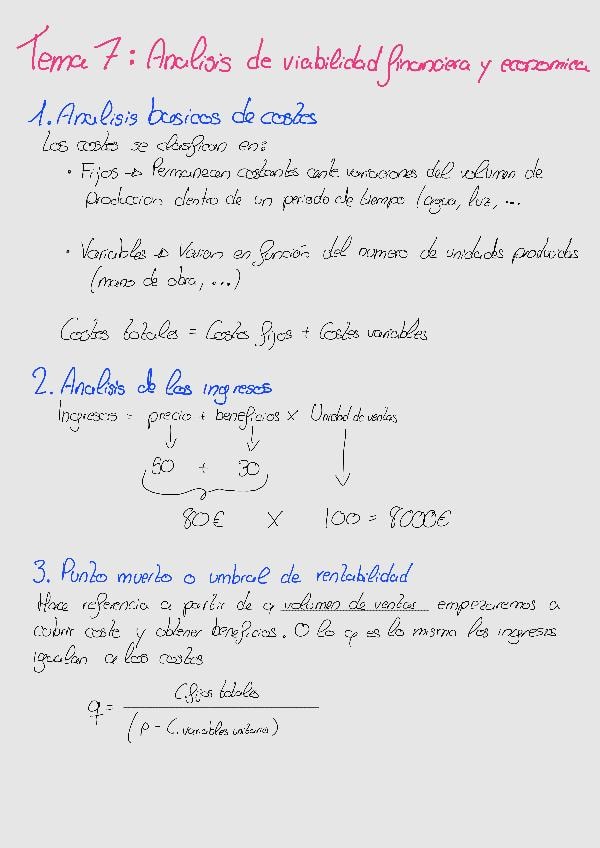 Tema 7: Analisis de viabilidad financiera y economica
1. Analisis basicos de costes
Los costes se clasifican en:
• Fijos → Permanecen costantes ante variaciones del volumen de
produccion dentro de un periodo de tiempo (agua, luz, ...
• Variables → Varian en función del numero de unidades producidas
(mano de obra, ...)
Costes totales = Costes fijos + Costes variables
2. Analisis de los ingresos
Ingresos = precio + beneficios x Unidad de ventas
50 + 30
80€ X 100 = 8000€
3. Punto muerto o umbral de rentabilidad
Hace referencia a partir de q volumen de ventas empezaremos a
cubrir coste y obtener beneficios. O lo q es lo mismo los ingresos
igualan a los costes
q = C.fijos totales
(p - C. variables unitarios)